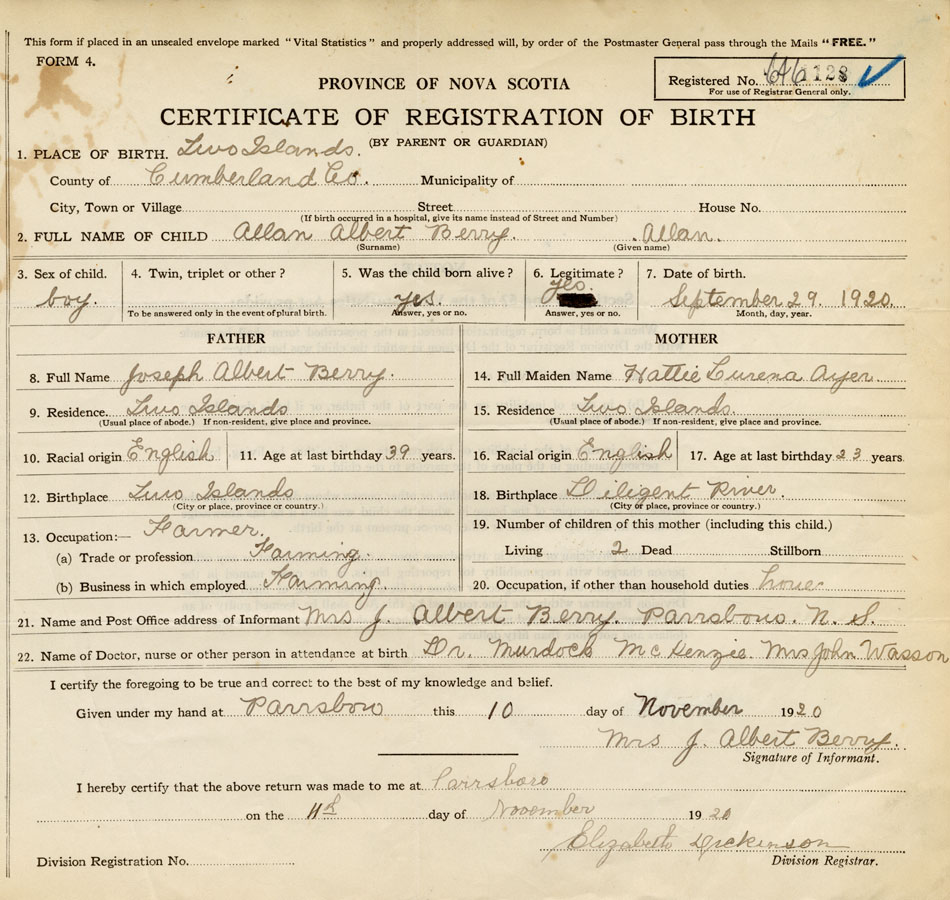 This form if placed in an unsealed envelope marked "Vital Statistics" and properly addressed will, by order of the Postmaster General pass through the Mails "FREE."
FORM 4.
PROVINCE OF NOVA SCOTIA
Registered No. 1128
For use of Registrar General only.
CERTIFICATE OF REGISTRATION OF BIRTH
(BY PARENT OR GUARDIAN)
1. PLACE OF BIRTH. Two Islands.
County of Cumberland Co. Municipality of
City, Town or Village Street House No.
(If birth occurred in a hospital, give its name instead of Street and Number)
2. FULL NAME OF CHILD Allan Albert Berry. Allan.
(Surname) (Given name)
3. Sex of child. 4. Twin, triplet or other? 5. Was the child born alive? 6. Legitimate? 7. Date of birth.
boy. yes. yes. September 29. 1920.
To be answered only in the event of plural birth. Answer, yes or no. Answer, yes or no. Month, day, year.
FATHER MOTHER
8. Full Name Joseph Albert Berry. 14. Full Maiden Name Hattie Lurena Ayer.
9. Residence. Two Islands 15. Residence Two Islands.
(Usual place of abode.) If non-resident, give place and province. (Usual place of abode.) If non-resident, give place and province.
10. Racial origin English 11. Age at last birthday 39 years. 16. Racial origin English 17. Age at last birthday 23 years.
12. Birthplace Two Islands 18. Birthplace Diligent River.
(City or place, province or country.) (City or place, province or country.)
13. Occupation:— Farmer. 19. Number of children of this mother (including this child.)
(a) Trade or profession Farming. Living 2 Dead Stillborn
(b) Business in which employed Farming. 20. Occupation, if other than household duties
21. Name and Post Office address of Informant Mrs J. Albert Berry. Parrsboro. N. S.
22. Name of Doctor, nurse or other person in attendance at birth Dr. Murdock McKenzie. Mrs John Wasson
I certify the foregoing to be true and correct to the best of my knowledge and belief.
Given under my hand at Parrsboro this 10 day of November 1920
Mrs J. Albert Berry.
Signature of Informant.
I hereby certify that the above return was made to me at Parrsboro
on the 11th day of November 1920
Elizabeth Dickinson
Division Registration No. Division Registrar.